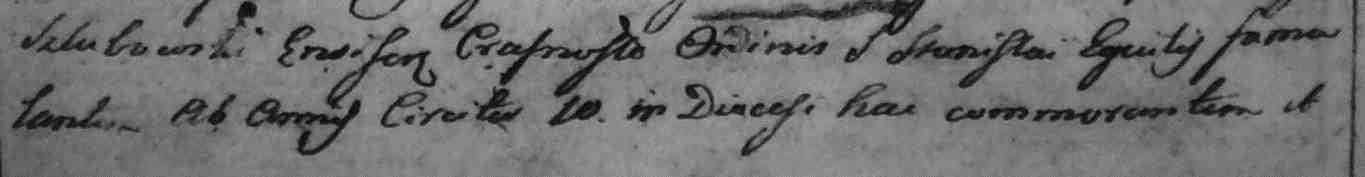 Szlubowski Ensiferi Crasnosta Ordinis S Stanislai Equitis famu
lantem ab Annis Circiter 10. in Diaecesi hac commorantem et